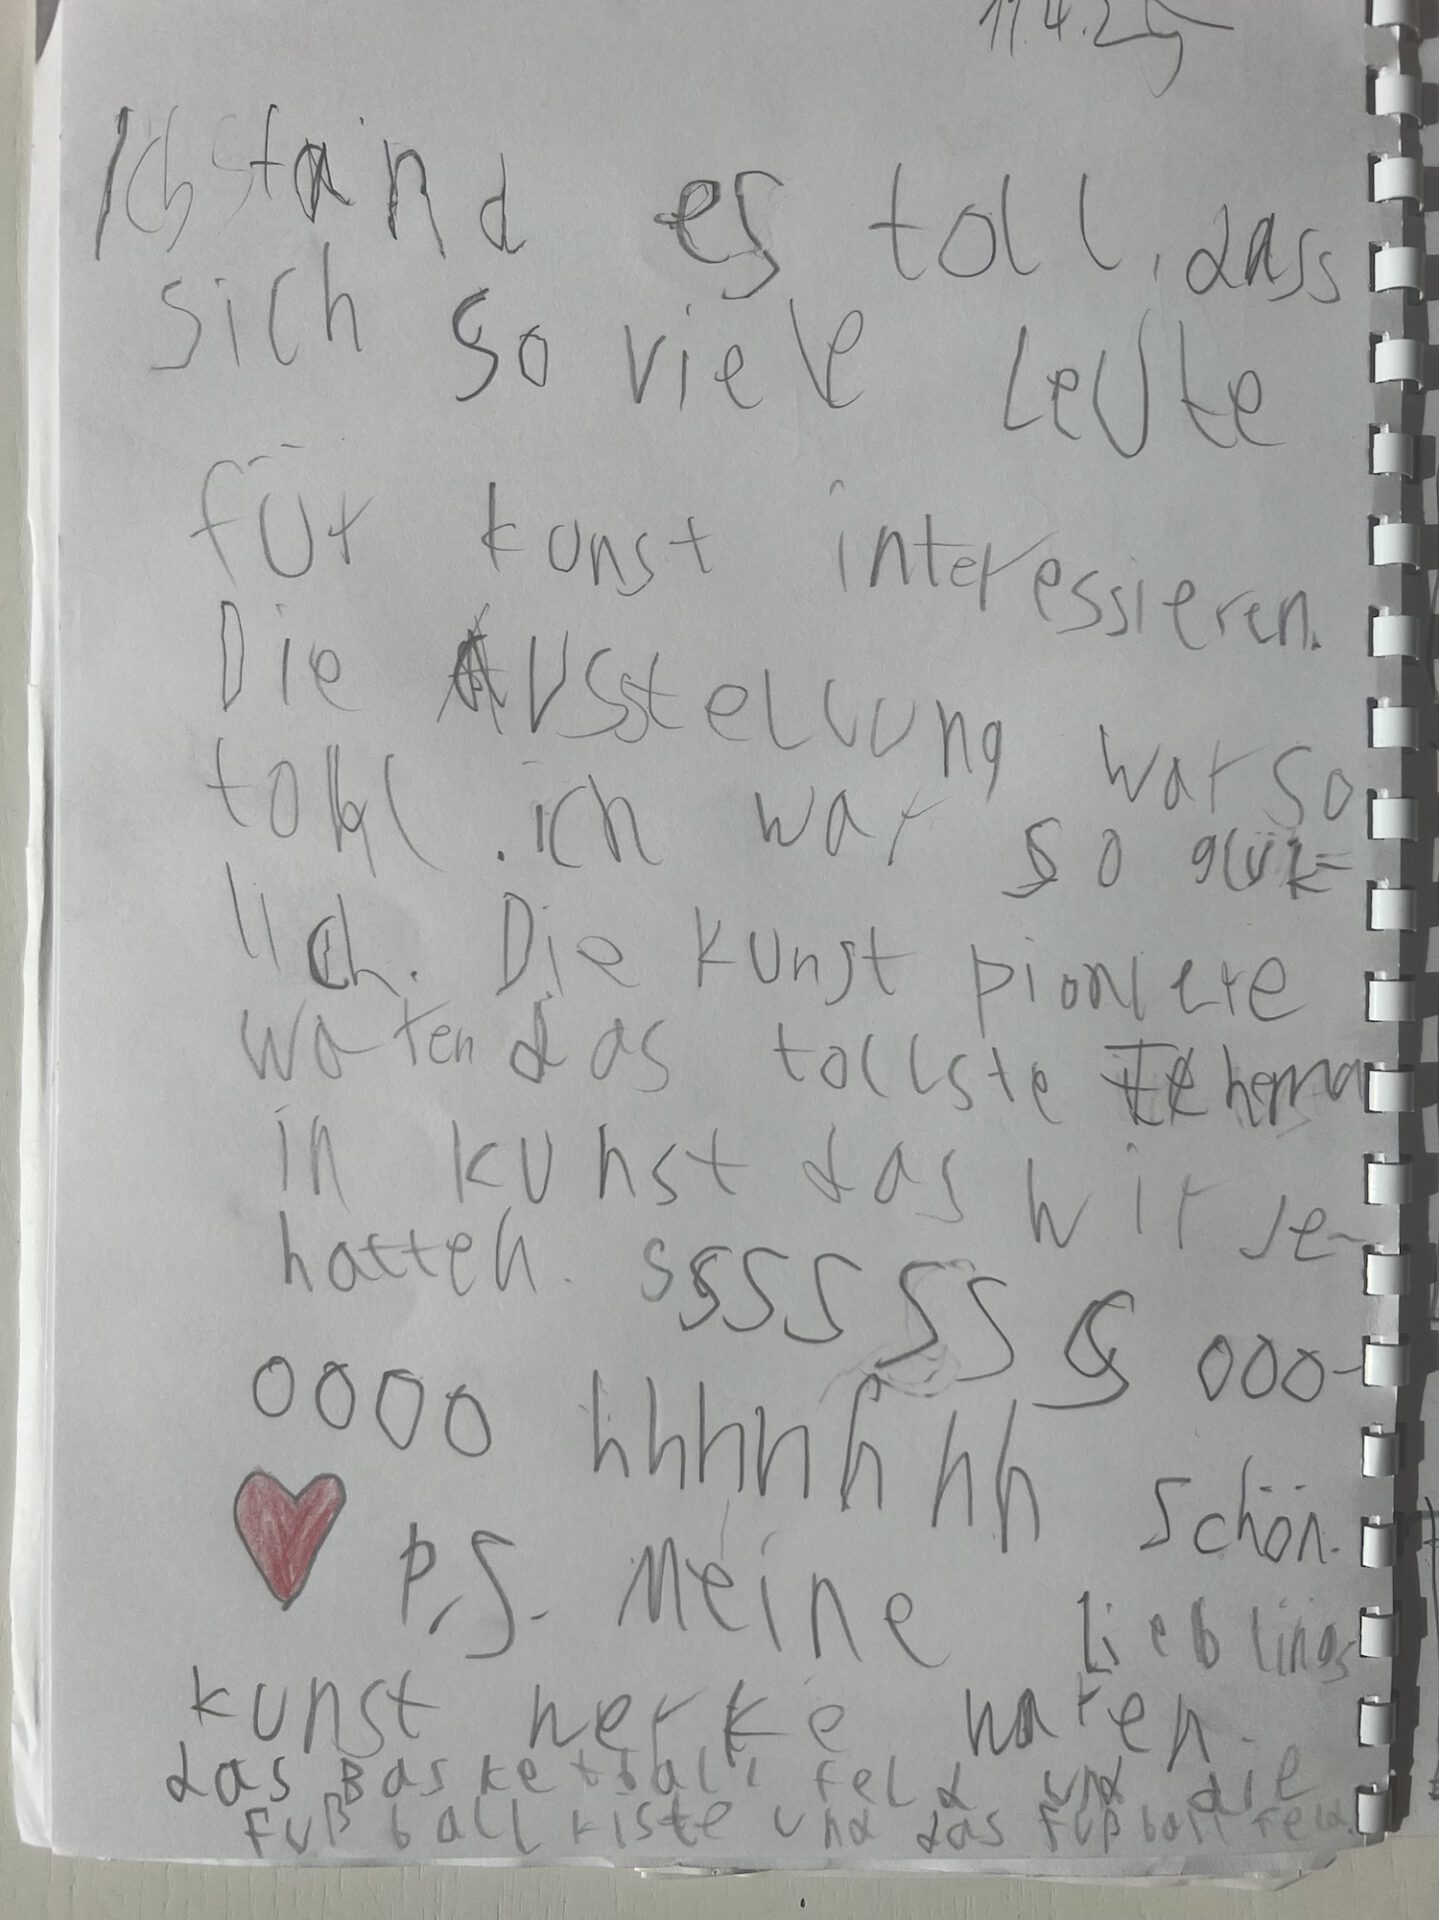 11.4.25
Ich stand es toll, dass
sich so viele Leute
für kunst interessieren.
Die Ausstellung war so
toll. ich war so glük=
lich. Die Kunst pioniere
waren das tollste Thema
in kunst das wir je-
hatten. sssssss ooo-
oooo hhhhhhh schön.
P.S. Meine Lieblings
kunst werke waren
das Basketball feld und die
fußball kiste und das fußball feld.